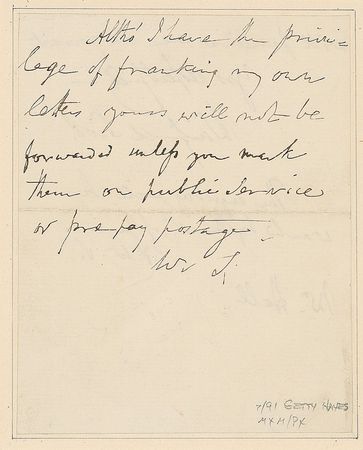 Altho' I have the privi=
lege of franking my own
letters yours will not be
forwarded unless you mark
them on public service
or pre pay postage.
W S.
7/91 GETTY HAYES
MXM/PX